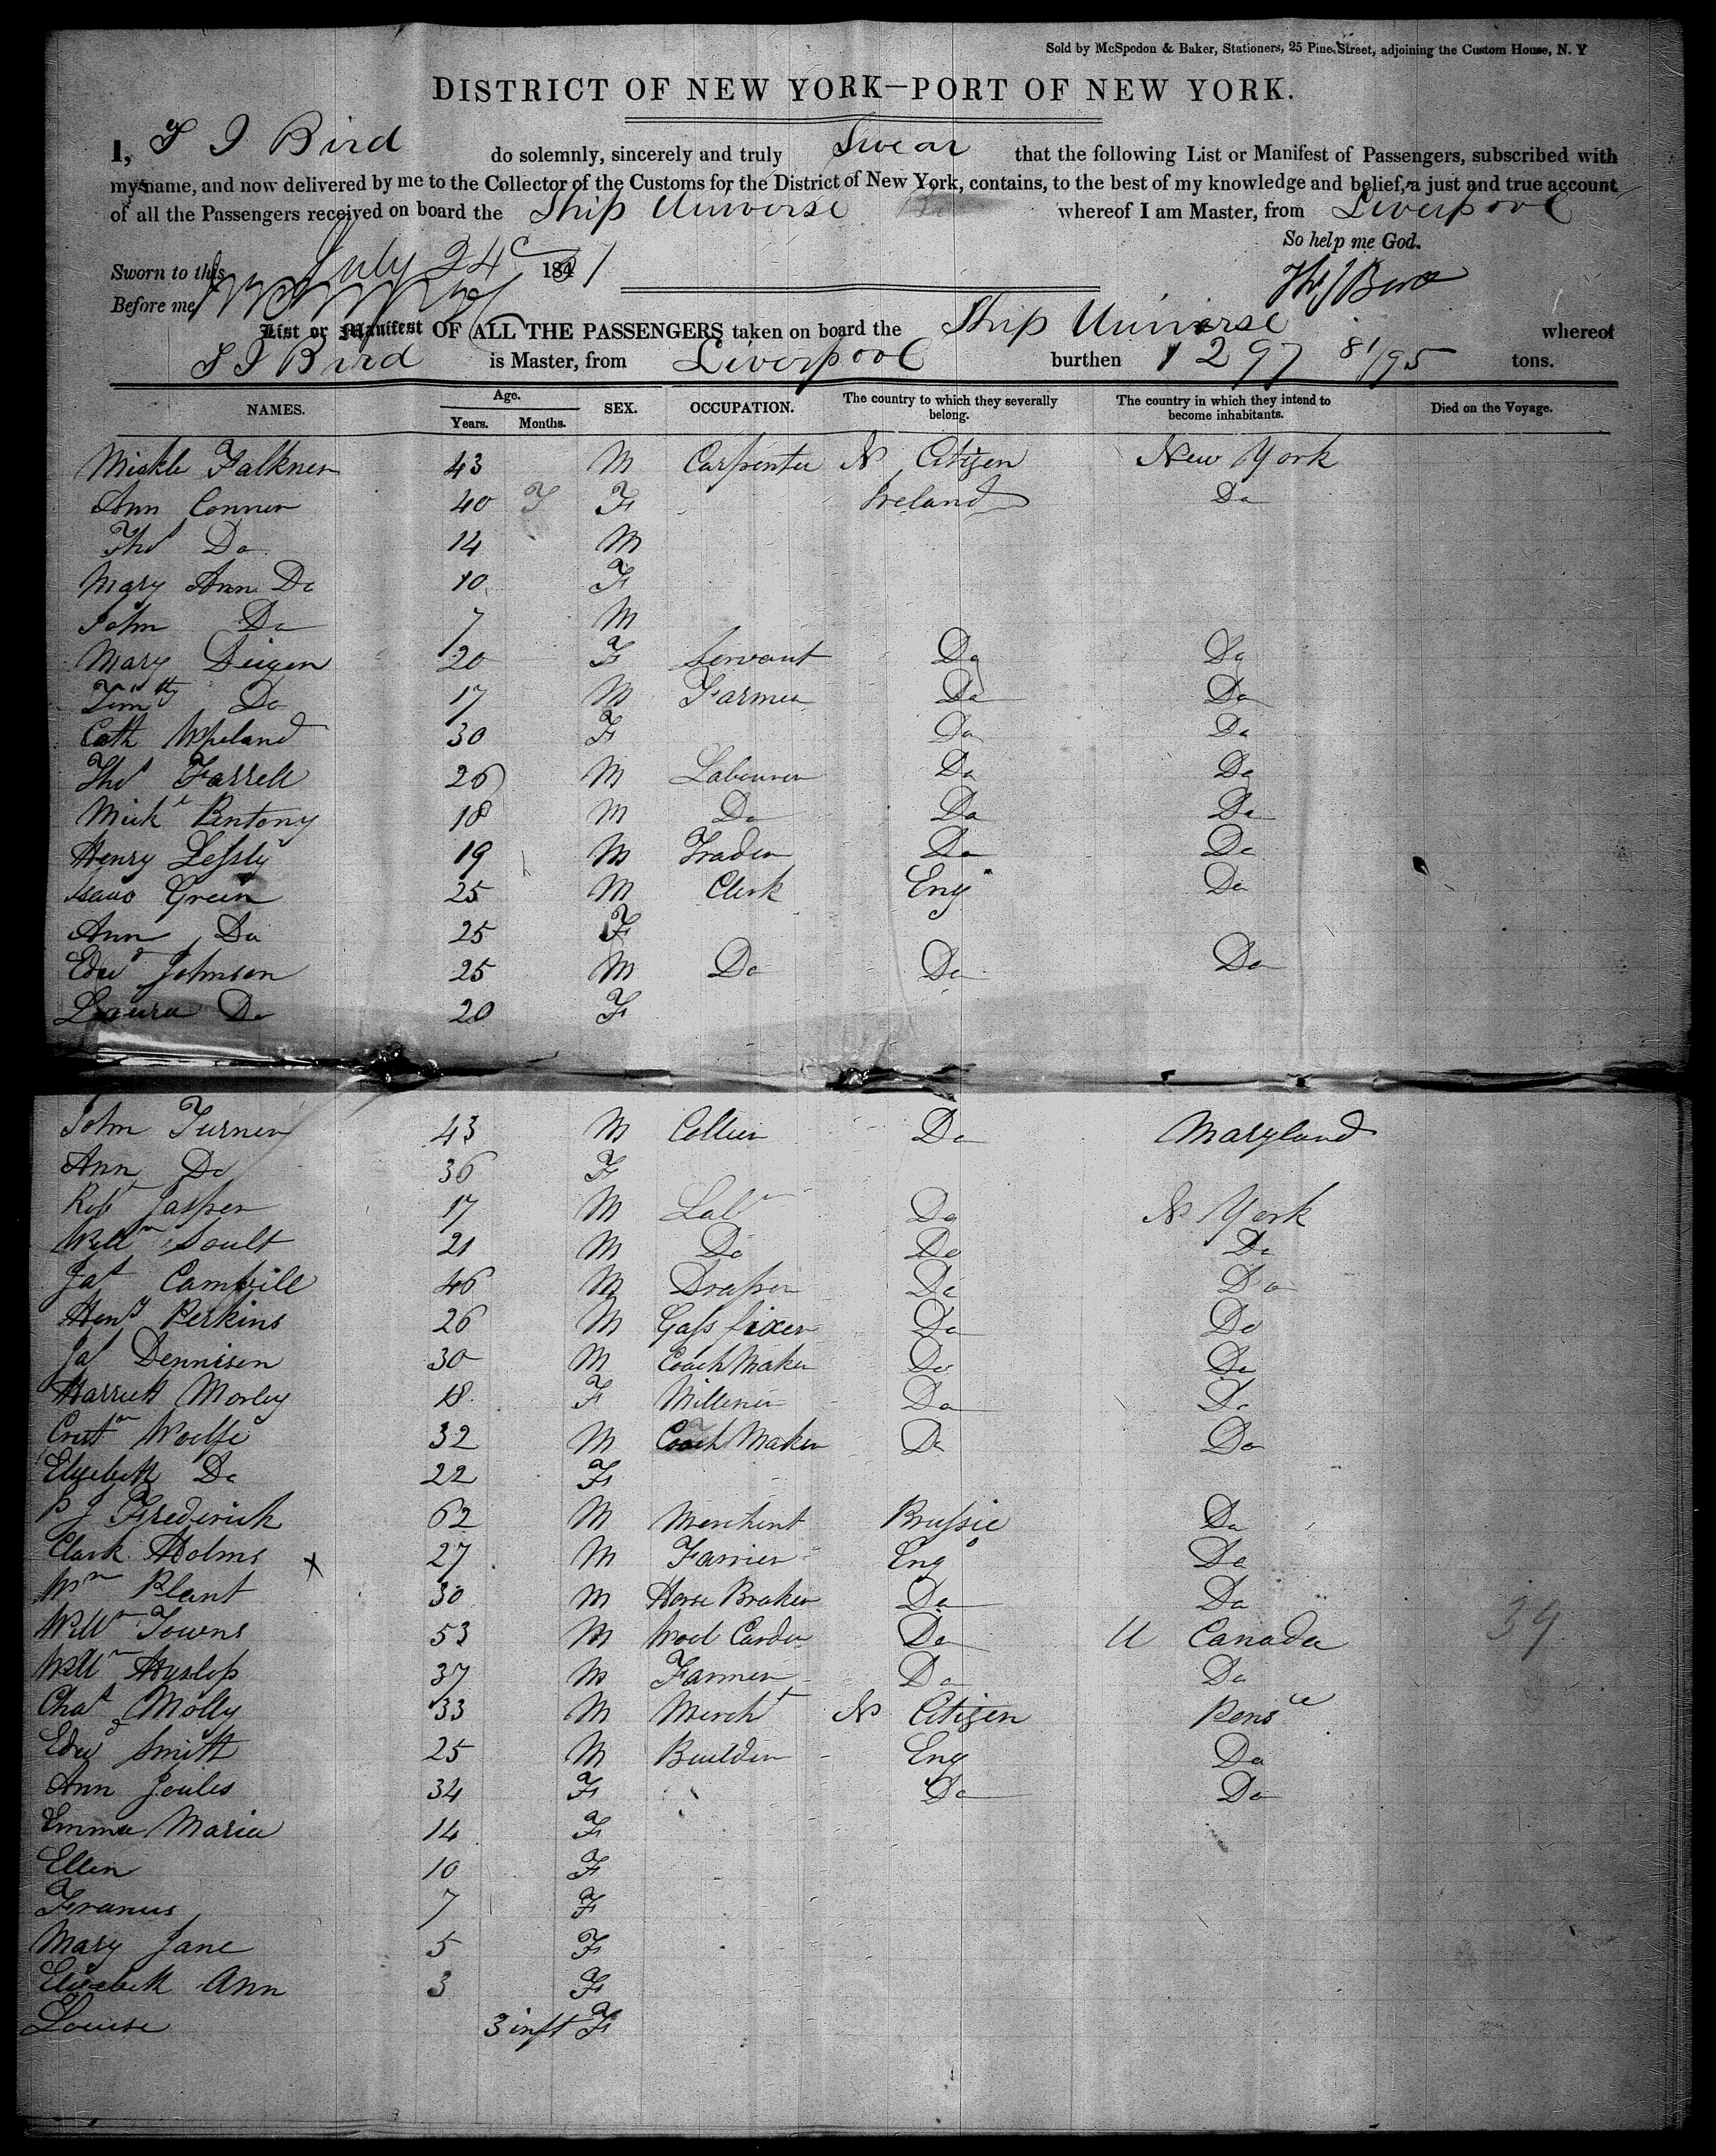 Sold by McSpedon & Baker, Stationers, 25 Pine Street, adjoining the Custom House, N. Y
DISTRICT OF NEW YORK—PORT OF NEW YORK.
I, T J Bird do solemnly, sincerely and truly Swear that the following List or Manifest of Passengers, subscribed with
my name, and now delivered by me to the Collector of the Customs for the District of New York, contains, to the best of my knowledge and belief, a just and true account
of all the Passengers received on board the Ship Universe whereof I am Master, from Liverpool
So help me God.
Sworn to this July 24 1851 Thos J Bird
Before me
List or Manifest OF ALL THE PASSENGERS taken on board the Ship Universe whereof
T J Bird is Master, from Liverpool burthen 1297 81/95 tons.
NAMES. Age. Years. Months. SEX. OCCUPATION. The country to which they severally belong. The country in which they intend to become inhabitants. Died on the Voyage.
Falkner 43 M Carpenter N Citizen New York
Ann Conner 40 F F Ireland Do
Thos Do 14 M
Mary Ann Do 10 F
John Do 7 M
Mary Deigen 20 F Servant Do Do
Timthy Do 17 M Farmer Do Do
Cath Wheland 30 F Do Do
Thos Farrell 26 M Labourer Do Do
Mich Pentony 18 M Do Do Do
Henry Lessly 19 M Trader Do Do
Isaac Green 25 M Clerk Eng Do
Ann Do 25 F
Edwd Johnson 25 M Do Do Do
Laura Do 20 F
John Turner 43 M Collier Do Maryland
Ann Do 36 F
Robt Jasper 17 M Labr Do N York
Willm Soult 21 M Do Do Do
Jas Camfill 46 M Draper Do Do
Heny Perkins 26 M Gass fixer Do Do
Jas Dennison 30 M Coach Maker Do Do
Harriett Morley 18 F Millener Do Do
Woelfe 32 M Coach Maker Do Do
Elizebeth Do 22 F
P J Frederick 62 M Merchent Prussie Do
Clark Holms x 27 M Farrier Engd Do
Wm Plant 30 M Horse Braker Do Do
Willm Towns 53 M Wool Carder Do U Canada 39
Willm Hyslop 37 M Farmer Do Do
Chas Molly 33 M Mercht N Citizen Pensce
Edwd Smith 25 M Builder Eng Do
Ann Joules 34 F Do Do
Emma Maria 14 F
Ellen 10 F
Francis 7 F
Mary Jane 5 F
Elizebeth Ann 3 F
Louise 3 inft F